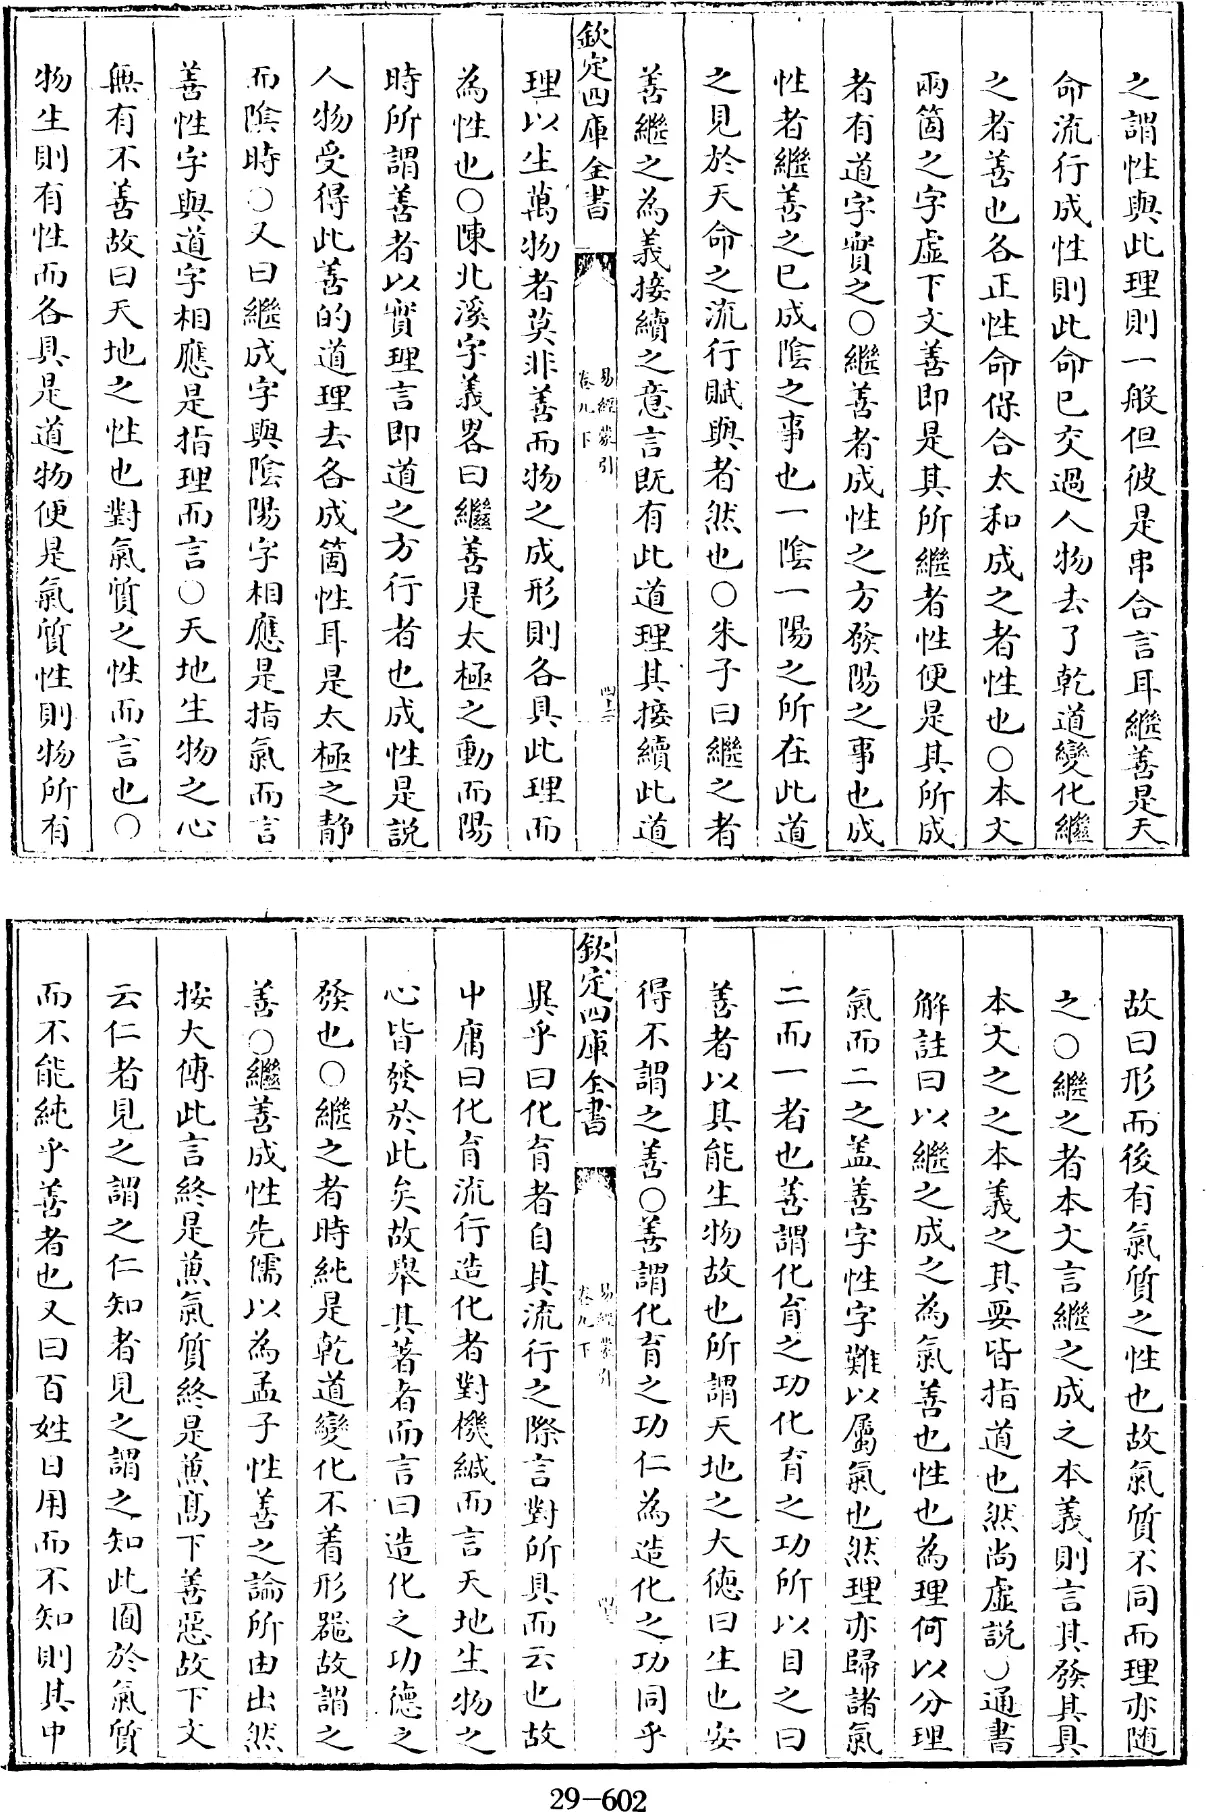 之謂性與此理則一般但彼是串合言耳繼善是天
命流行成性則此命已交過人物去了乾道變化繼
之者善也各正性命保合太和成之者性也○本文
兩箇之字虛下文善即是其所繼者性便是其所成
者有道字實之○繼善者成性之方發陽之事也成
性者繼善之已成陰之事也一陰一陽之所在此道
之見於天命之流行賦與者然也○朱子曰繼之者
善繼之為義接續之意言既有此道理其接續此道
欽定四庫全書
易經蒙引
卷九下
理以生萬物者莫非善而物之成形則各具此理而
為性也○陳北溪字義畧曰繼善是太極之動而陽
時所謂善者以實理言即道之方行者也成性是說
人物受得此善的道理去各成箇性耳是太極之靜
而陰時○又曰繼成字與陰陽字相應是指氣而言
善性字與道字相應是指理而言○天地生物之心
無有不善故曰天地之性也對氣質之性而言也○
物生則有性而各具是道物便是氣質性則物所有
故曰形而後有氣質之性也故氣質不同而理亦隨
之○繼之者本文言繼之成之本義則言其發其具
本文之之本義之其要皆指道也然尚虛說○通書
解註曰以繼之成之為氣善也性也為理何以分理
氣而二之盖善字性字難以屬氣也然理亦歸諸氣
二而一者也善謂化育之功化育之功所以目之曰
善者以其能生物故也所謂天地之大德曰生也安
得不謂之善○善謂化育之功仁為造化之功同乎
欽定四庫全書
易經蒙引
卷九下
異乎曰化育者自其流行之際言對所具而云也故
中庸曰化育流行造化者對機緘而言天地生物之
心皆發於此矣故舉其著者而言曰造化之功德之
發也○繼之者時純是乾道變化不着形器故謂之
善○繼善成性先儒以為孟子性善之論所由出然
按大傳此言終是兼氣質終是兼高下善惡故下文
云仁者見之謂之仁知者見之謂之知此囿於氣質
而不能純乎善者也又曰百姓日用而不知則其中
29-602